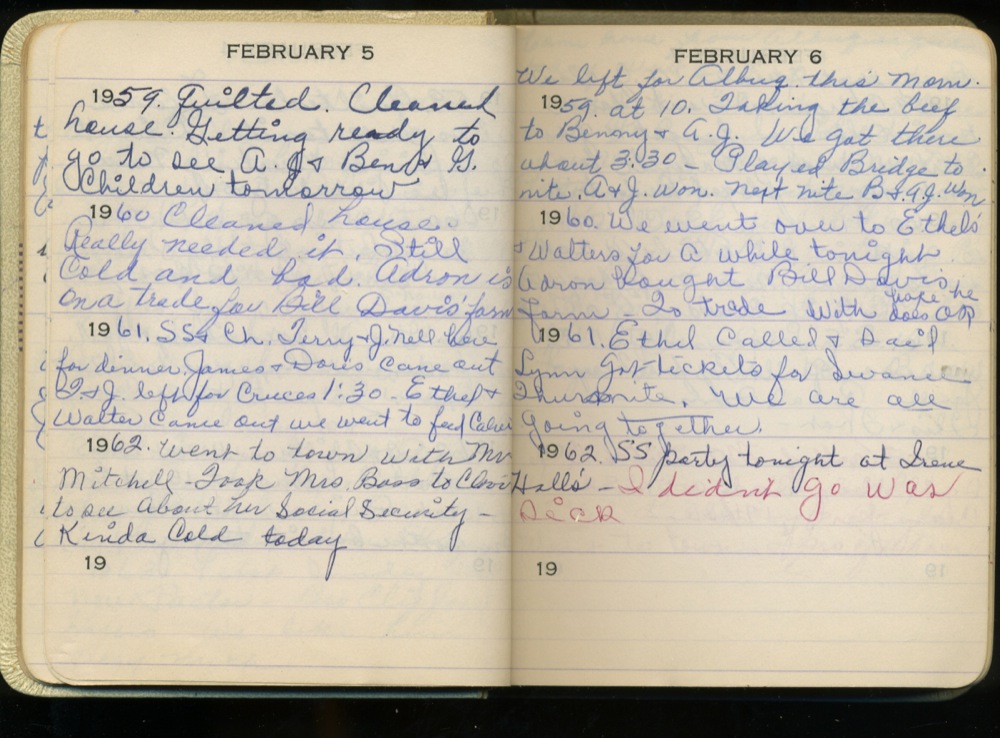 FEBRUARY 5
1959. Quilted. Cleaned
house. Getting ready to
go to see A.J & Ben & G.
Children tomorrow
1960 Cleaned house.
Really needed it. Still
Cold and bad. Adron is
on a trade for Bill Davis' farm
1961. SS & Ch. Terry & J. Nell here
for dinner. James & Doris came out
T. & J. left for Cruces 1:30 - Ethel &
Walter came out we went to feed Calves
1962. Went to town with Mr
Mitchell - Took Mrs. Bass to Clovis
to see About her Social Security -
Kinda Cold today
19
FEBRUARY 6
We left for Albuq. this morn.
1959. at 10. Taking the beef
to Benny & A.J. We got there
about 3:30 - Played Bridge to
nite. A & J. won. next nite B & A.J. won
1960. We went over to Ethel's
& Walters for a while tonight
Adron bought Bill Davis
farm - To trade with hope he does OK
1961. Ethel Called & Dail
Lynn got tickets for
Thurs nite. We are all
going together.
1962. SS party tonight at Irene
Hall's - I didn't go was
sick
19